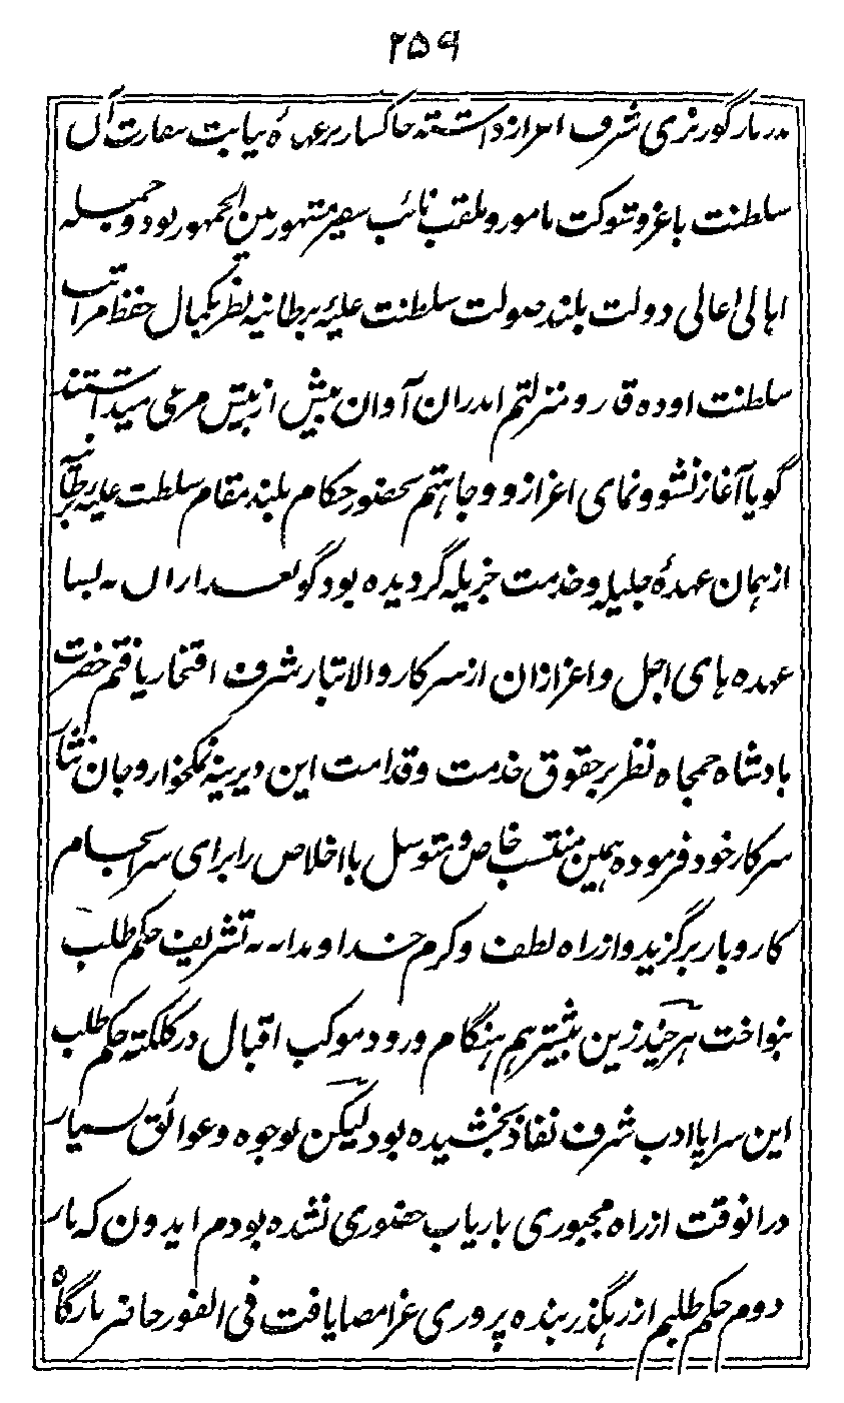 ۲۵۹
دربار گورنری شرف امراز داشته خاکسار بر عهدهٔ نیابت سفارت آن
سلطنت با عز و شوکت مامور و ملقب نائب سفیر مشهور بین الجمهور بود و جمله
اهالی اعالی دولت بلند صولت سلطنت علیهٔ برطانیه نظر بکمال حفظ مراتب
سلطنت اوده قار و منزلتم اندران آوان بیش از بیش مرعی میداشتند
گویا آغاز نشو و نمای اعزاز و وجاهتم بحضور حکام بلند مقام سلطت علیه برطانیه
از همان عهدهٔ جلیله و خدمت جزیله گردیده بود گو بعد ازان به بسا
عهده های اجل و اعز ازان از سرکار والا تبار شرف افتخار یافتم حضرت
بادشاه جمجاه نظر بر حقوق خدمت و قدامت این دیرینه نمکخوار و جان نثار
سرکار خود فرموده همین منتسب خاص و متوسل با اخلاص را برای سرانجام
کار و بار برگزید و از راه لطف و کرم خداوندانه به تشریف حکم طلب
بنواخت هر چند زین بیشتر هم هنگام ورود موکب اقبال در کلکته حکم طلب
این سراپا ادب شرف نفاذ بخشیده بود لیکن بوجوه و عوائق بسیار
درانوقت از راه مجبوری باریاب حضوری نشده بودم ایدون که بار
دوم حکم طلبم از رهگذر بنده پروری عز امضا یافت فی الفور حاضر بارگاه